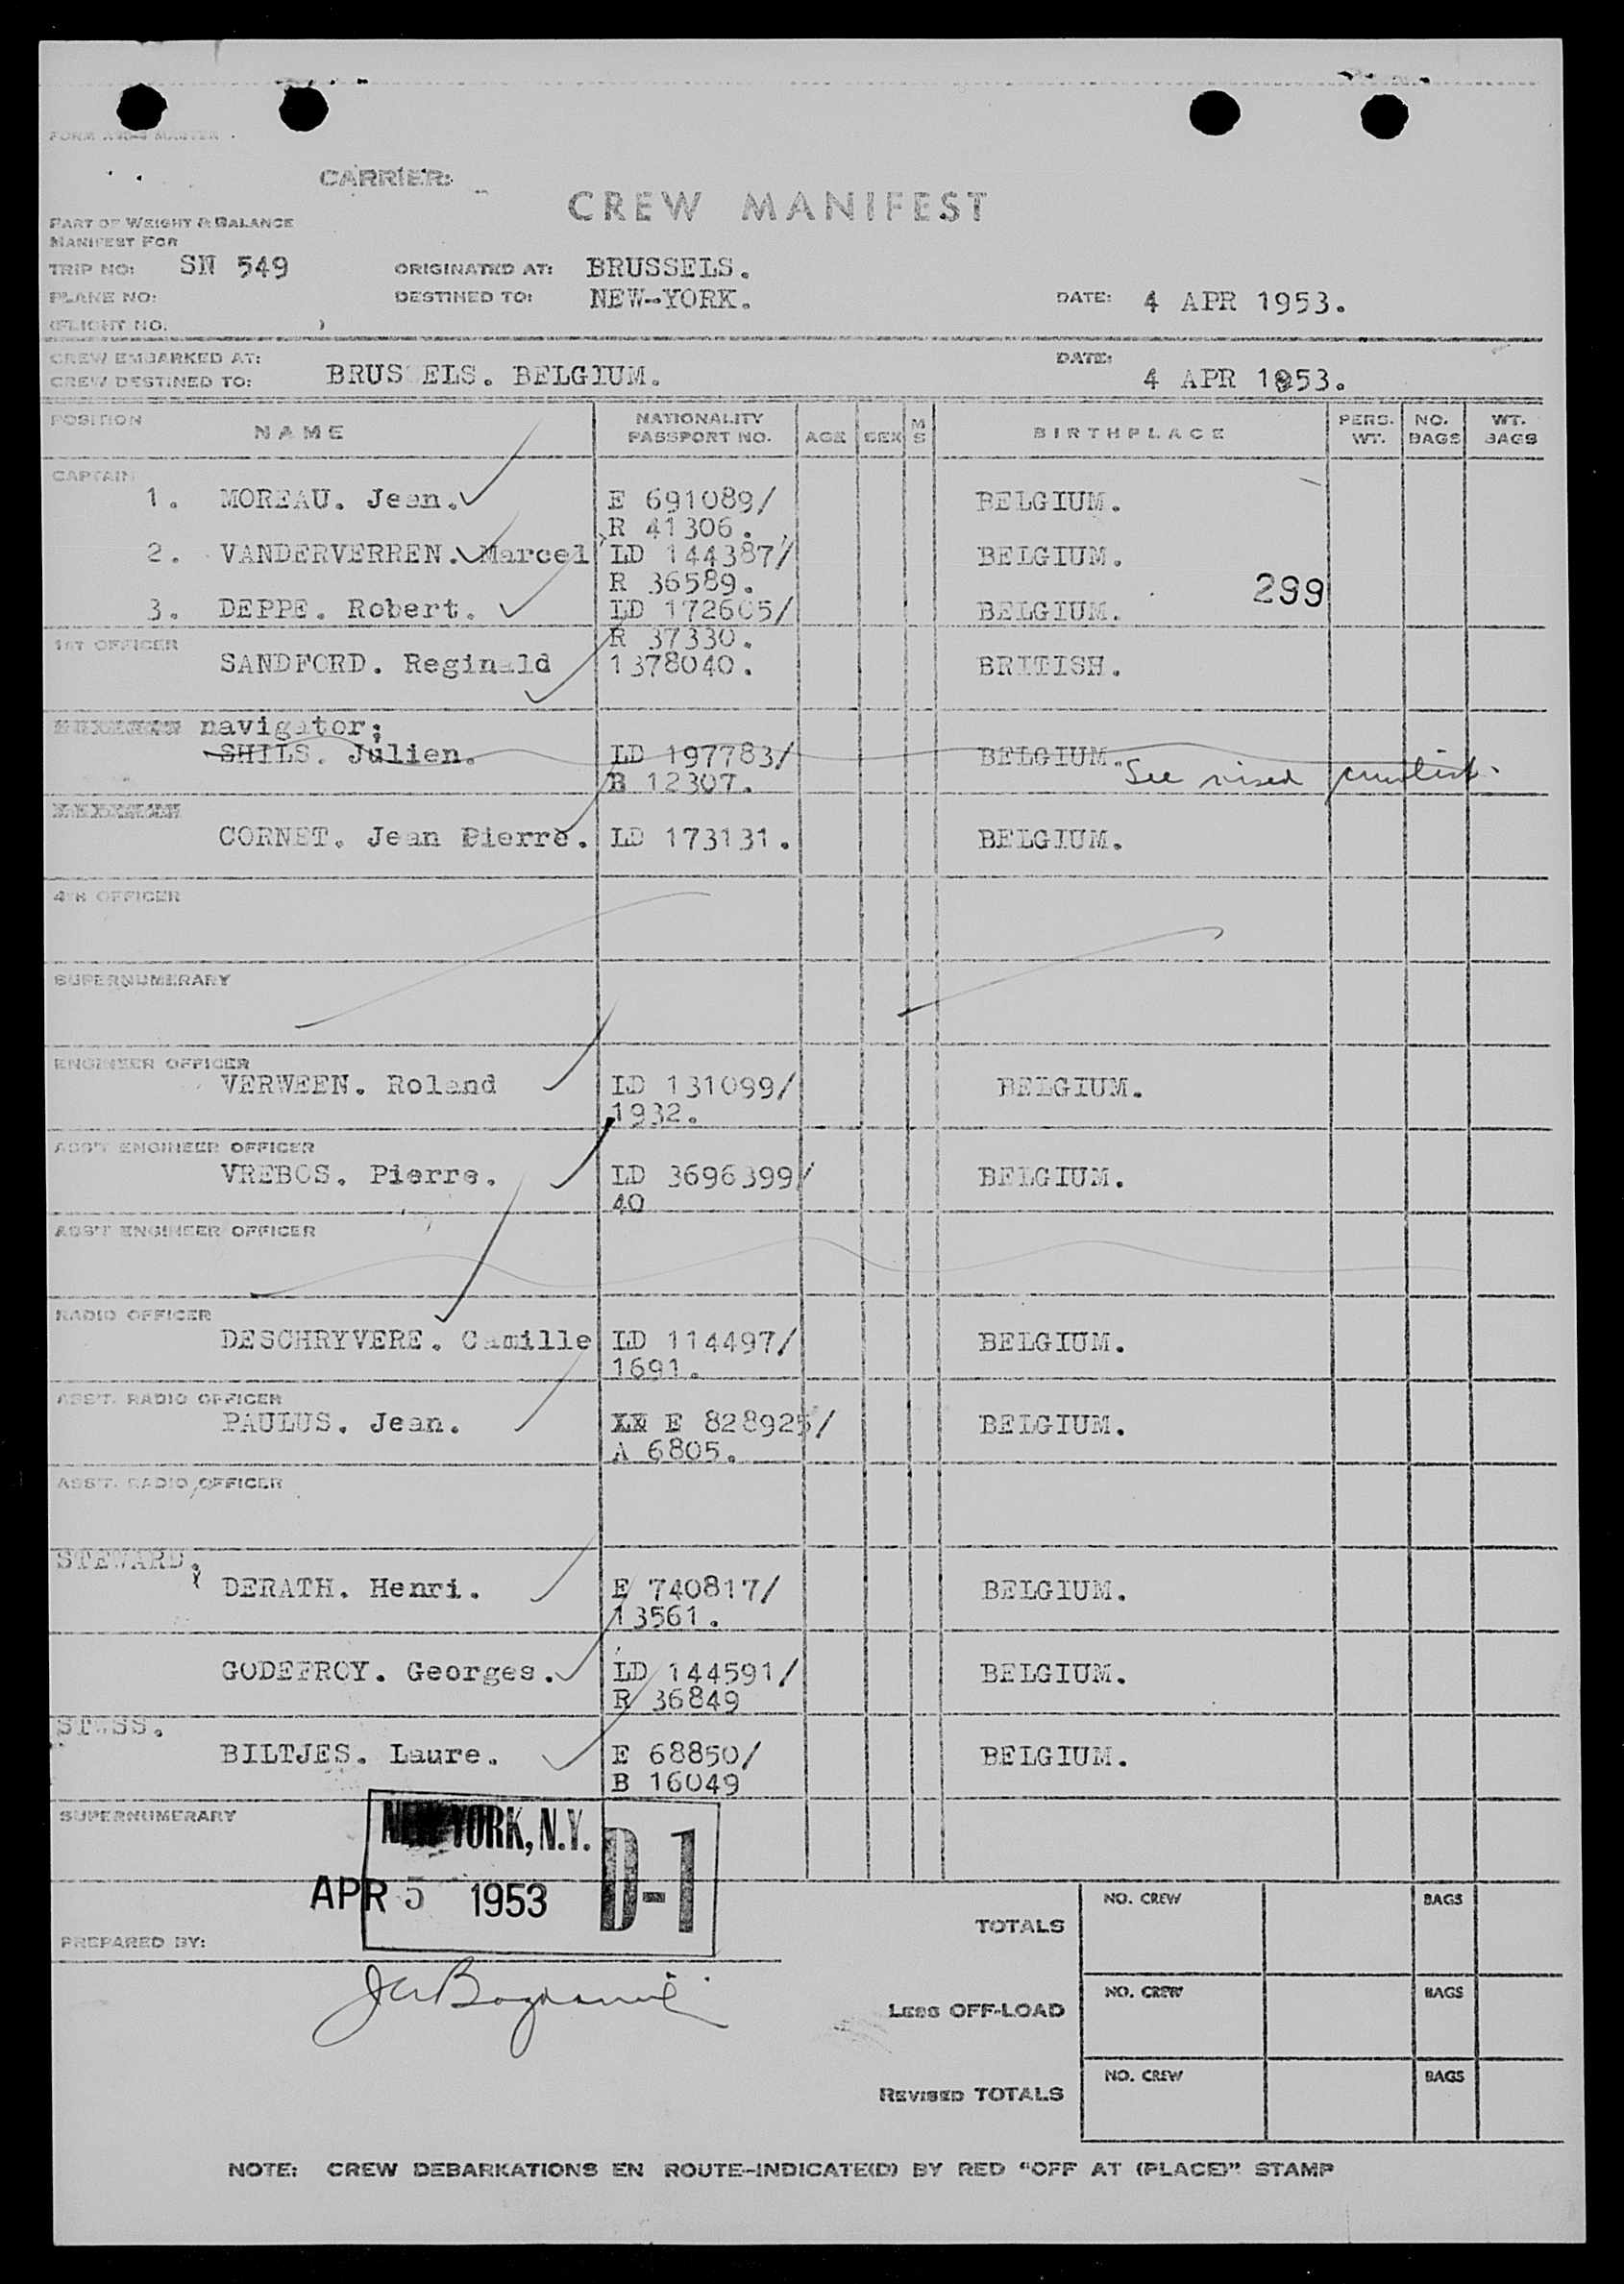 CARRIER:
CREW MANIFEST
PART OF WEIGHT & BALANCE
MANIFEST FOR
TRIP NO: SN 549 ORIGINATED AT: BRUSSELS.
PLANE NO: DESTINED TO: NEW-YORK. DATE: 4 APR 1953.
(FLIGHT NO. )
CREW EMBARKED AT: DATE:
CREW DESTINED TO: BRUS ELS. BELGIUM. 4 APR 1953.
POSITION NAME NATIONALITY PASSPORT NO. AGE SEX M S BIRTHPLACE PERS. WT. NO. BAGS WT. BAGS
CAPTAIN
1. MOREAU. Jean. E 691089/ BELGIUM.
R 41306.
2. VANDERVERREN. Marcel LD 144387/ BELGIUM.
R 36589. 299
3. DEPPE. Robert. LD 172605/ BELGIUM.
1ST OFFICER R 37330.
SANDFORD. Reginald 1378040. BRITISH.
navigator;
SHILS. Julien. LD 197783/ BELGIUM.
B 12307. See
CORNET. Jean Pierre. LD 173131. BELGIUM.
4TH OFFICER
SUPERNUMERARY
ENGINEER OFFICER
VERWEEN. Roland LD 131099/ BELGIUM.
1932.
ASS'T ENGINEER OFFICER
VREBOS. Pierre. LD 3696399/ BELGIUM.
40
ASS'T ENGINEER OFFICER
RADIO OFFICER
DESCHRYVERE. Camille LD 114497/ BELGIUM.
1691.
ASS'T. RADIO OFFICER
PAULUS. Jean. E 828925/ BELGIUM.
A 6805.
ASS'T. RADIO OFFICER
STEWARD.
DERATH. Henri. E 740817/ BELGIUM.
13561.
GODEFROY. Georges. LD 144591/ BELGIUM.
R 36849
STWSS.
BILTJES. Laure. E 68850/ BELGIUM.
B 16049
SUPERNUMERARY
NEW YORK, N.Y.
D-1
APR 5 1953
PREPARED BY:
TOTALS NO. CREW BAGS
LESS OFF-LOAD NO. CREW BAGS
REVISED TOTALS NO. CREW BAGS
NOTE: CREW DEBARKATIONS EN ROUTE-INDICATE(D) BY RED "OFF AT (PLACE)" STAMP